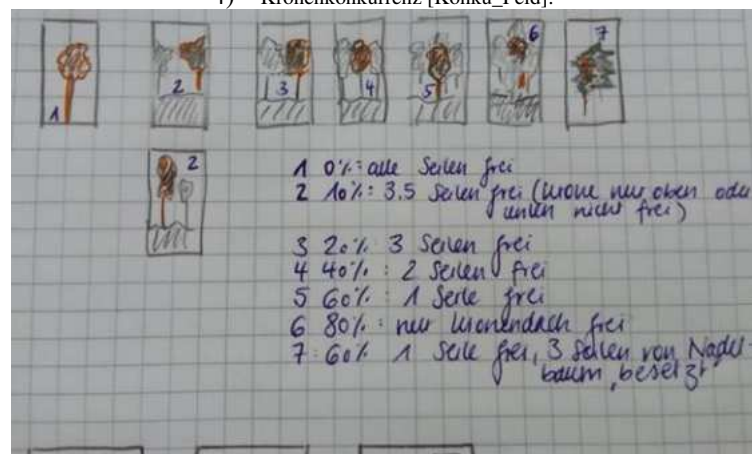 4) Kronenkonkurrenz [Konku_Feld]:
1
2
3
4
5
6
7
2
1 0%: alle Seiten frei
2 10%: 3.5 Seiten frei (Krone nur oben oder
unten nicht frei)
3 20% 3 Seiten frei
4 40%: 2 Seiten frei
5 60%: 1 Seite frei
6 80%: nur Kronendach frei
7: 60% 1 Seite frei, 3 Seiten von Nadel-
baum besetzt